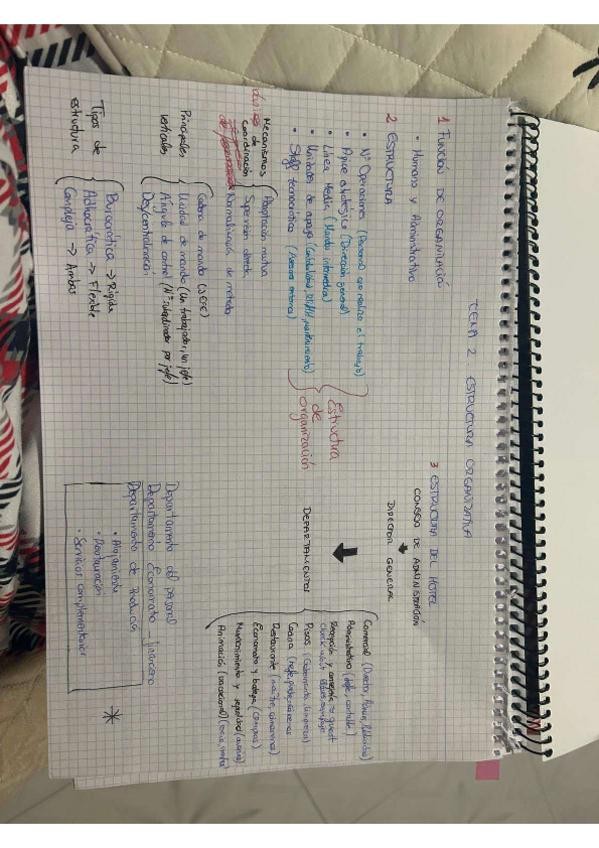 TEMA 2 ESTRUCTURA ORGANIZATIVA
1 FUNCIÓN DE ORGANIZACIÓN
• Humano y Administrativo
2 ESTRUCTURA
• Nº Operaciones (Personas que realiza el trabajo)
• Apice estratégico (Dirección general)
• Línea Media (Mandos intermedios)
• Unidades de apoyo (Contabilidad, RRHH, mantenimiento)
• Staff tecnocrático (Asesora externa)
Estructura
de
organización
Mecanismos
de
coordinación
Adaptación mutua
Supervisión directa
Normalización de métodos
Principales
verticales
Cadena de mando (JEFE)
Unidad de mando (Un trabajador, un jefe)
Ángulo de control (Nº subordinados por jefe)
Des/centralización
Tipos de
estructura
Burocrática → Rígida
Adhocrática → Flexible
Compleja → Ambas
3 ESTRUCTURA DEL HOTEL
CONSEJO DE ADMINISTRACIÓN
DIRECTOR GENERAL
DEPARTAMENTOS
Comercial (Director,
Administrativo (Jefe,
Recepción y conserjería → guest
Pisos (Gobernanta, limpieza)
Cocina (Jefe,
Restaurante (maître, camareros)
Economato y bodega (compras)
Mantenimiento y seguridad
Animación
Departamento del personal
Departamento Económico – financiero
Departamento de Producción
• Alojamiento
• Restauración
• Servicios complementarios